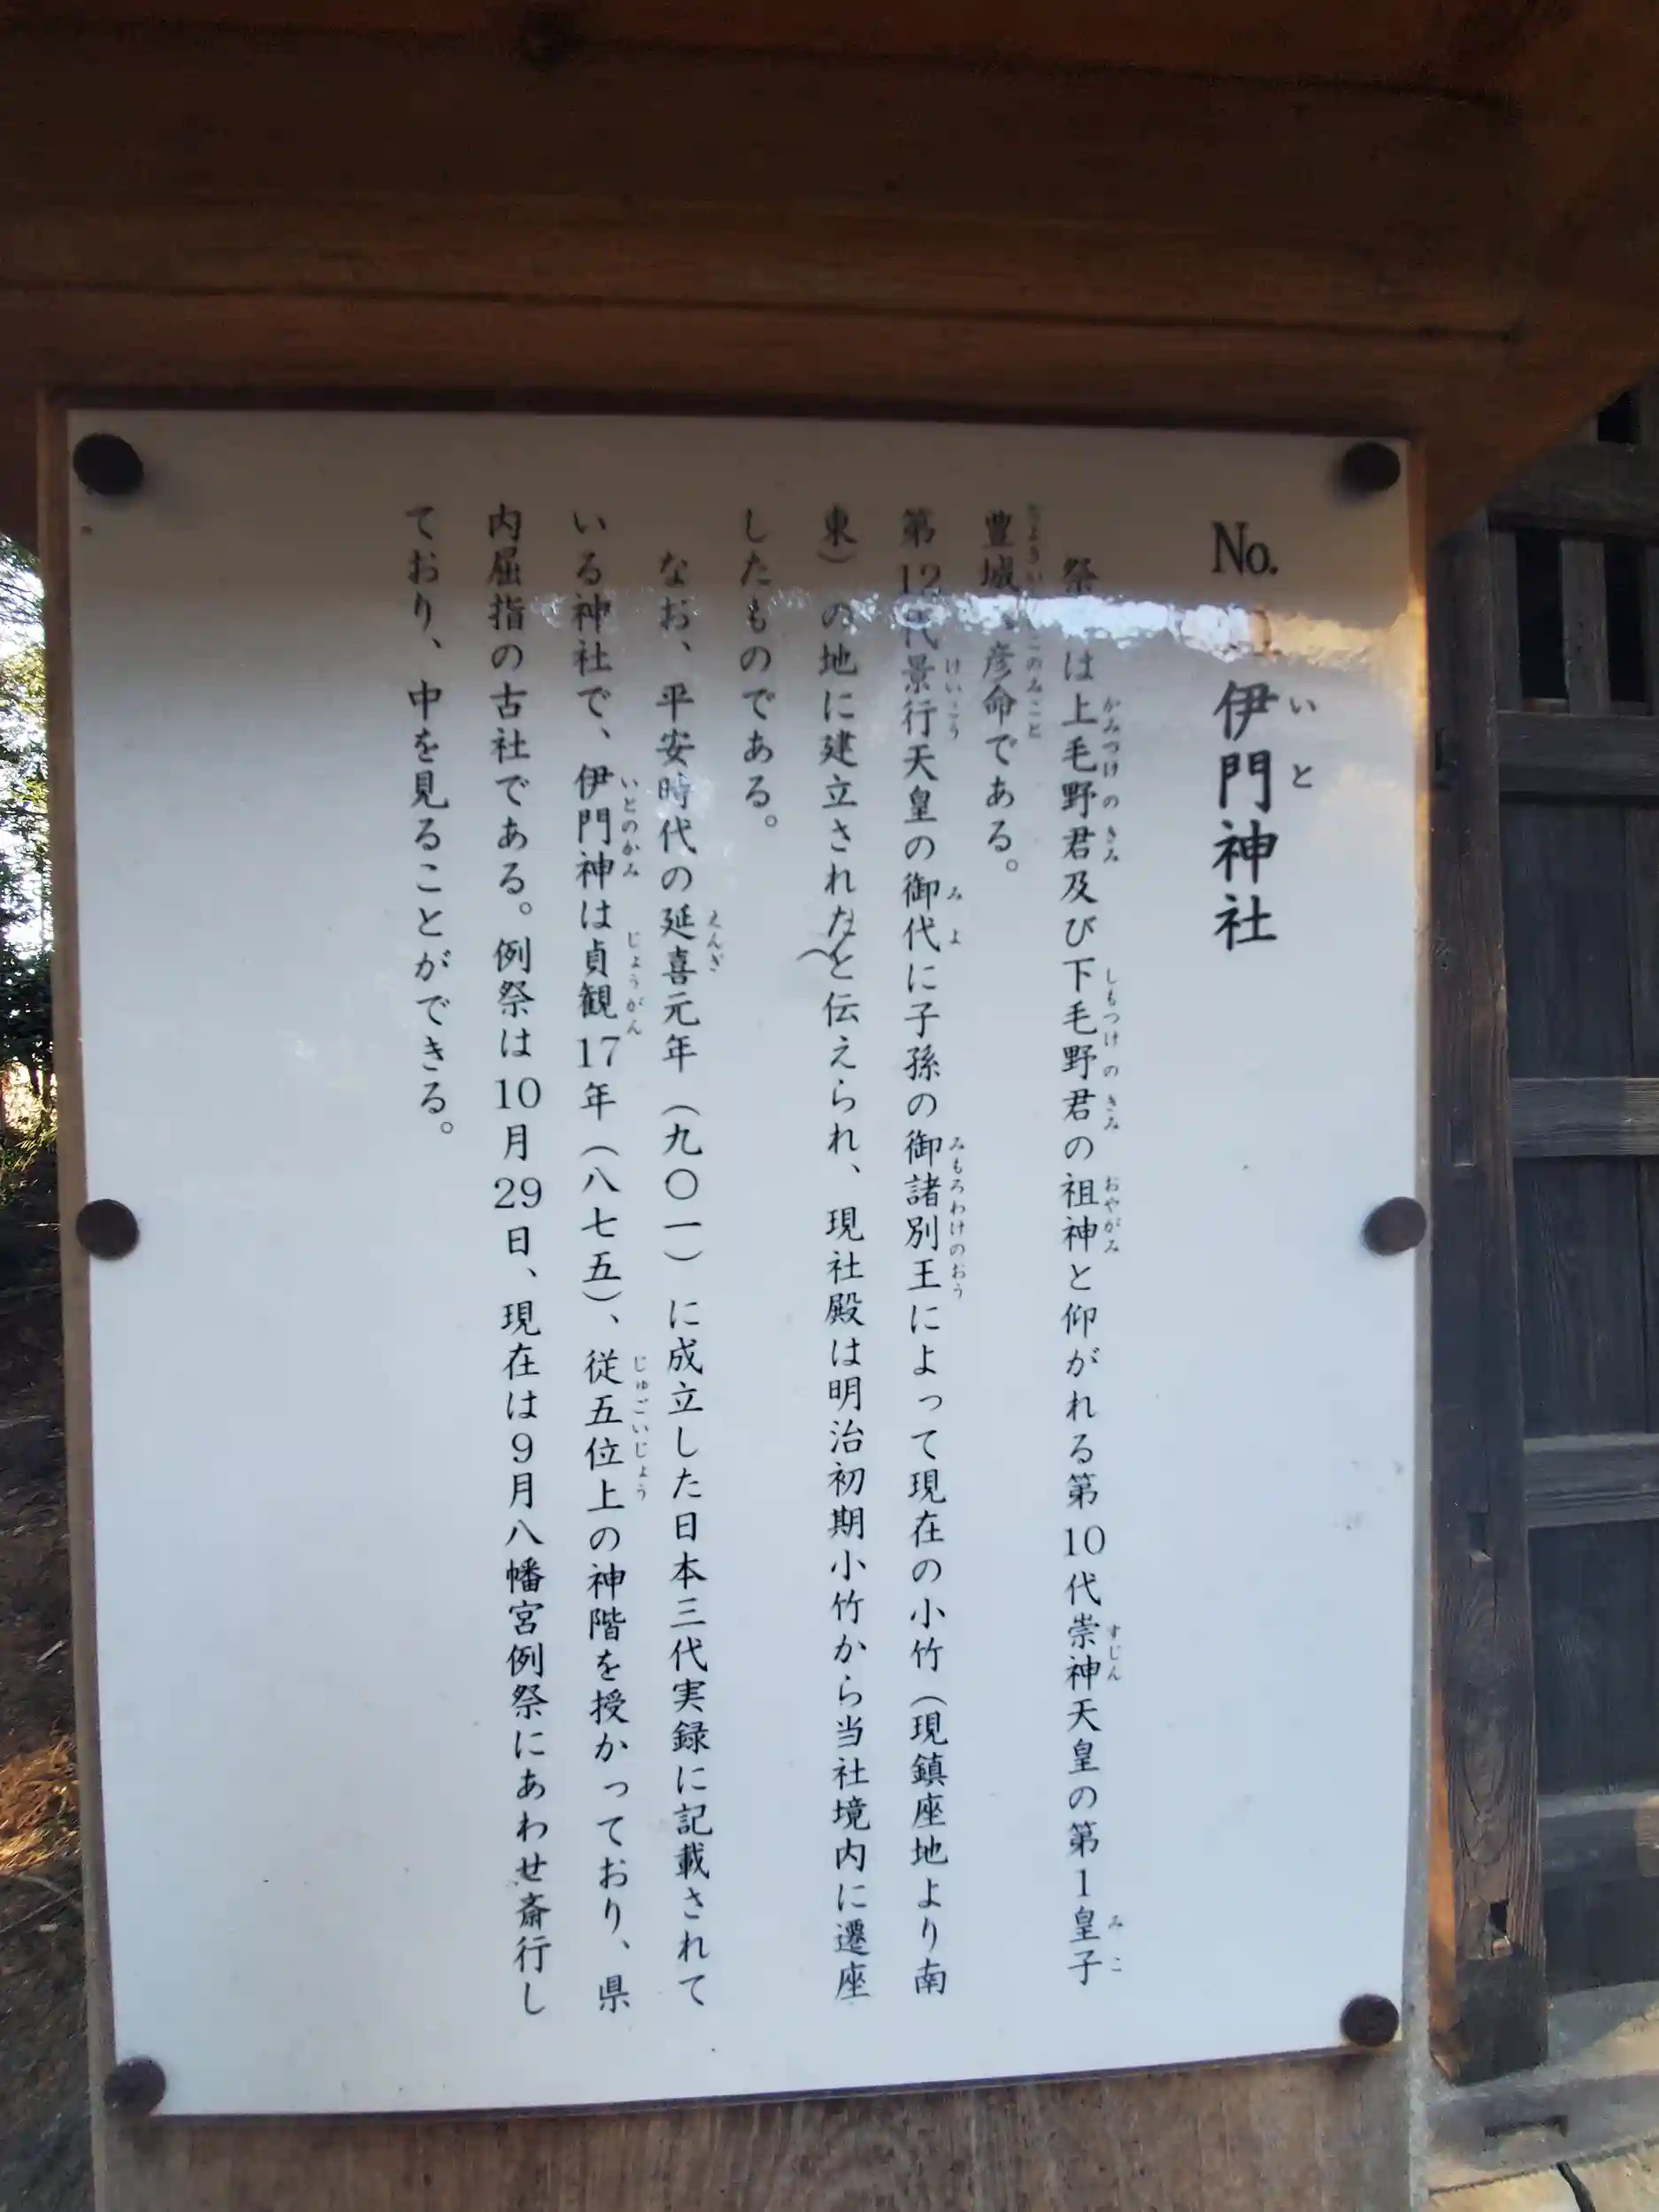 No. 伊門神社
祭は上毛野君及び下毛野君の祖神と仰がれる第10代崇神天皇の第1皇子
豊城彦命である。
第12代景行天皇の御代に子孫の御諸別王によって現在の小竹（現鎮座地より南
東）の地に建立されたと伝えられ、現社殿は明治初期小竹から当社境内に遷座
したものである。
なお、平安時代の延喜元年（九〇一）に成立した日本三代実録に記載されて
いる神社で、伊門神は貞観17年（八七五）、従五位上の神階を授かっており、県
内屈指の古社である。例祭は10月29日、現在は9月八幡宮例祭にあわせ斎行し
ており、中を見ることができる。